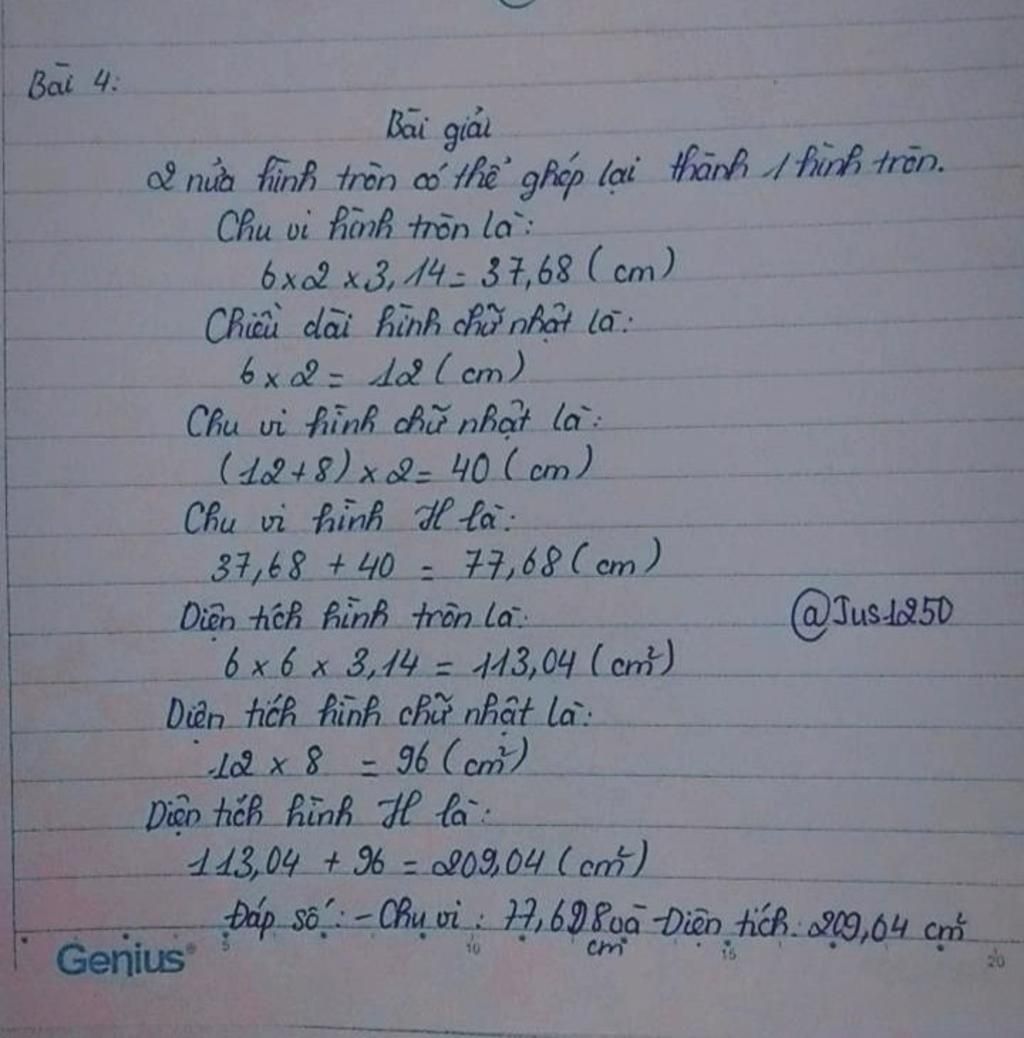 Bài 4:
Bài giải
2 nửa hình tròn có thể ghép lại thành 1 hình tròn.
Chu vi hình tròn là:
6 x 2 x 3,14 = 37,68 ( cm )
Chiều dài hình chữ nhật là:
6 x 2 = 12 ( cm )
Chu vi hình chữ nhật là:
( 12 + 8 ) x 2 = 40 ( cm )
Chu vi hình H là:
37,68 + 40 = 77,68 ( cm )
Diện tích hình tròn là:
@Jus1250
6 x 6 x 3,14 = 113,04 ( cm² )
Diện tích hình chữ nhật là:
12 x 8 = 96 ( cm² )
Diện tích hình H là:
113,04 + 96 = 209,04 ( cm² )
Đáp số: - Chu vi : 77,68 và - Diện tích: 209,04 cm²
cm
Genius® 5 10 15 20